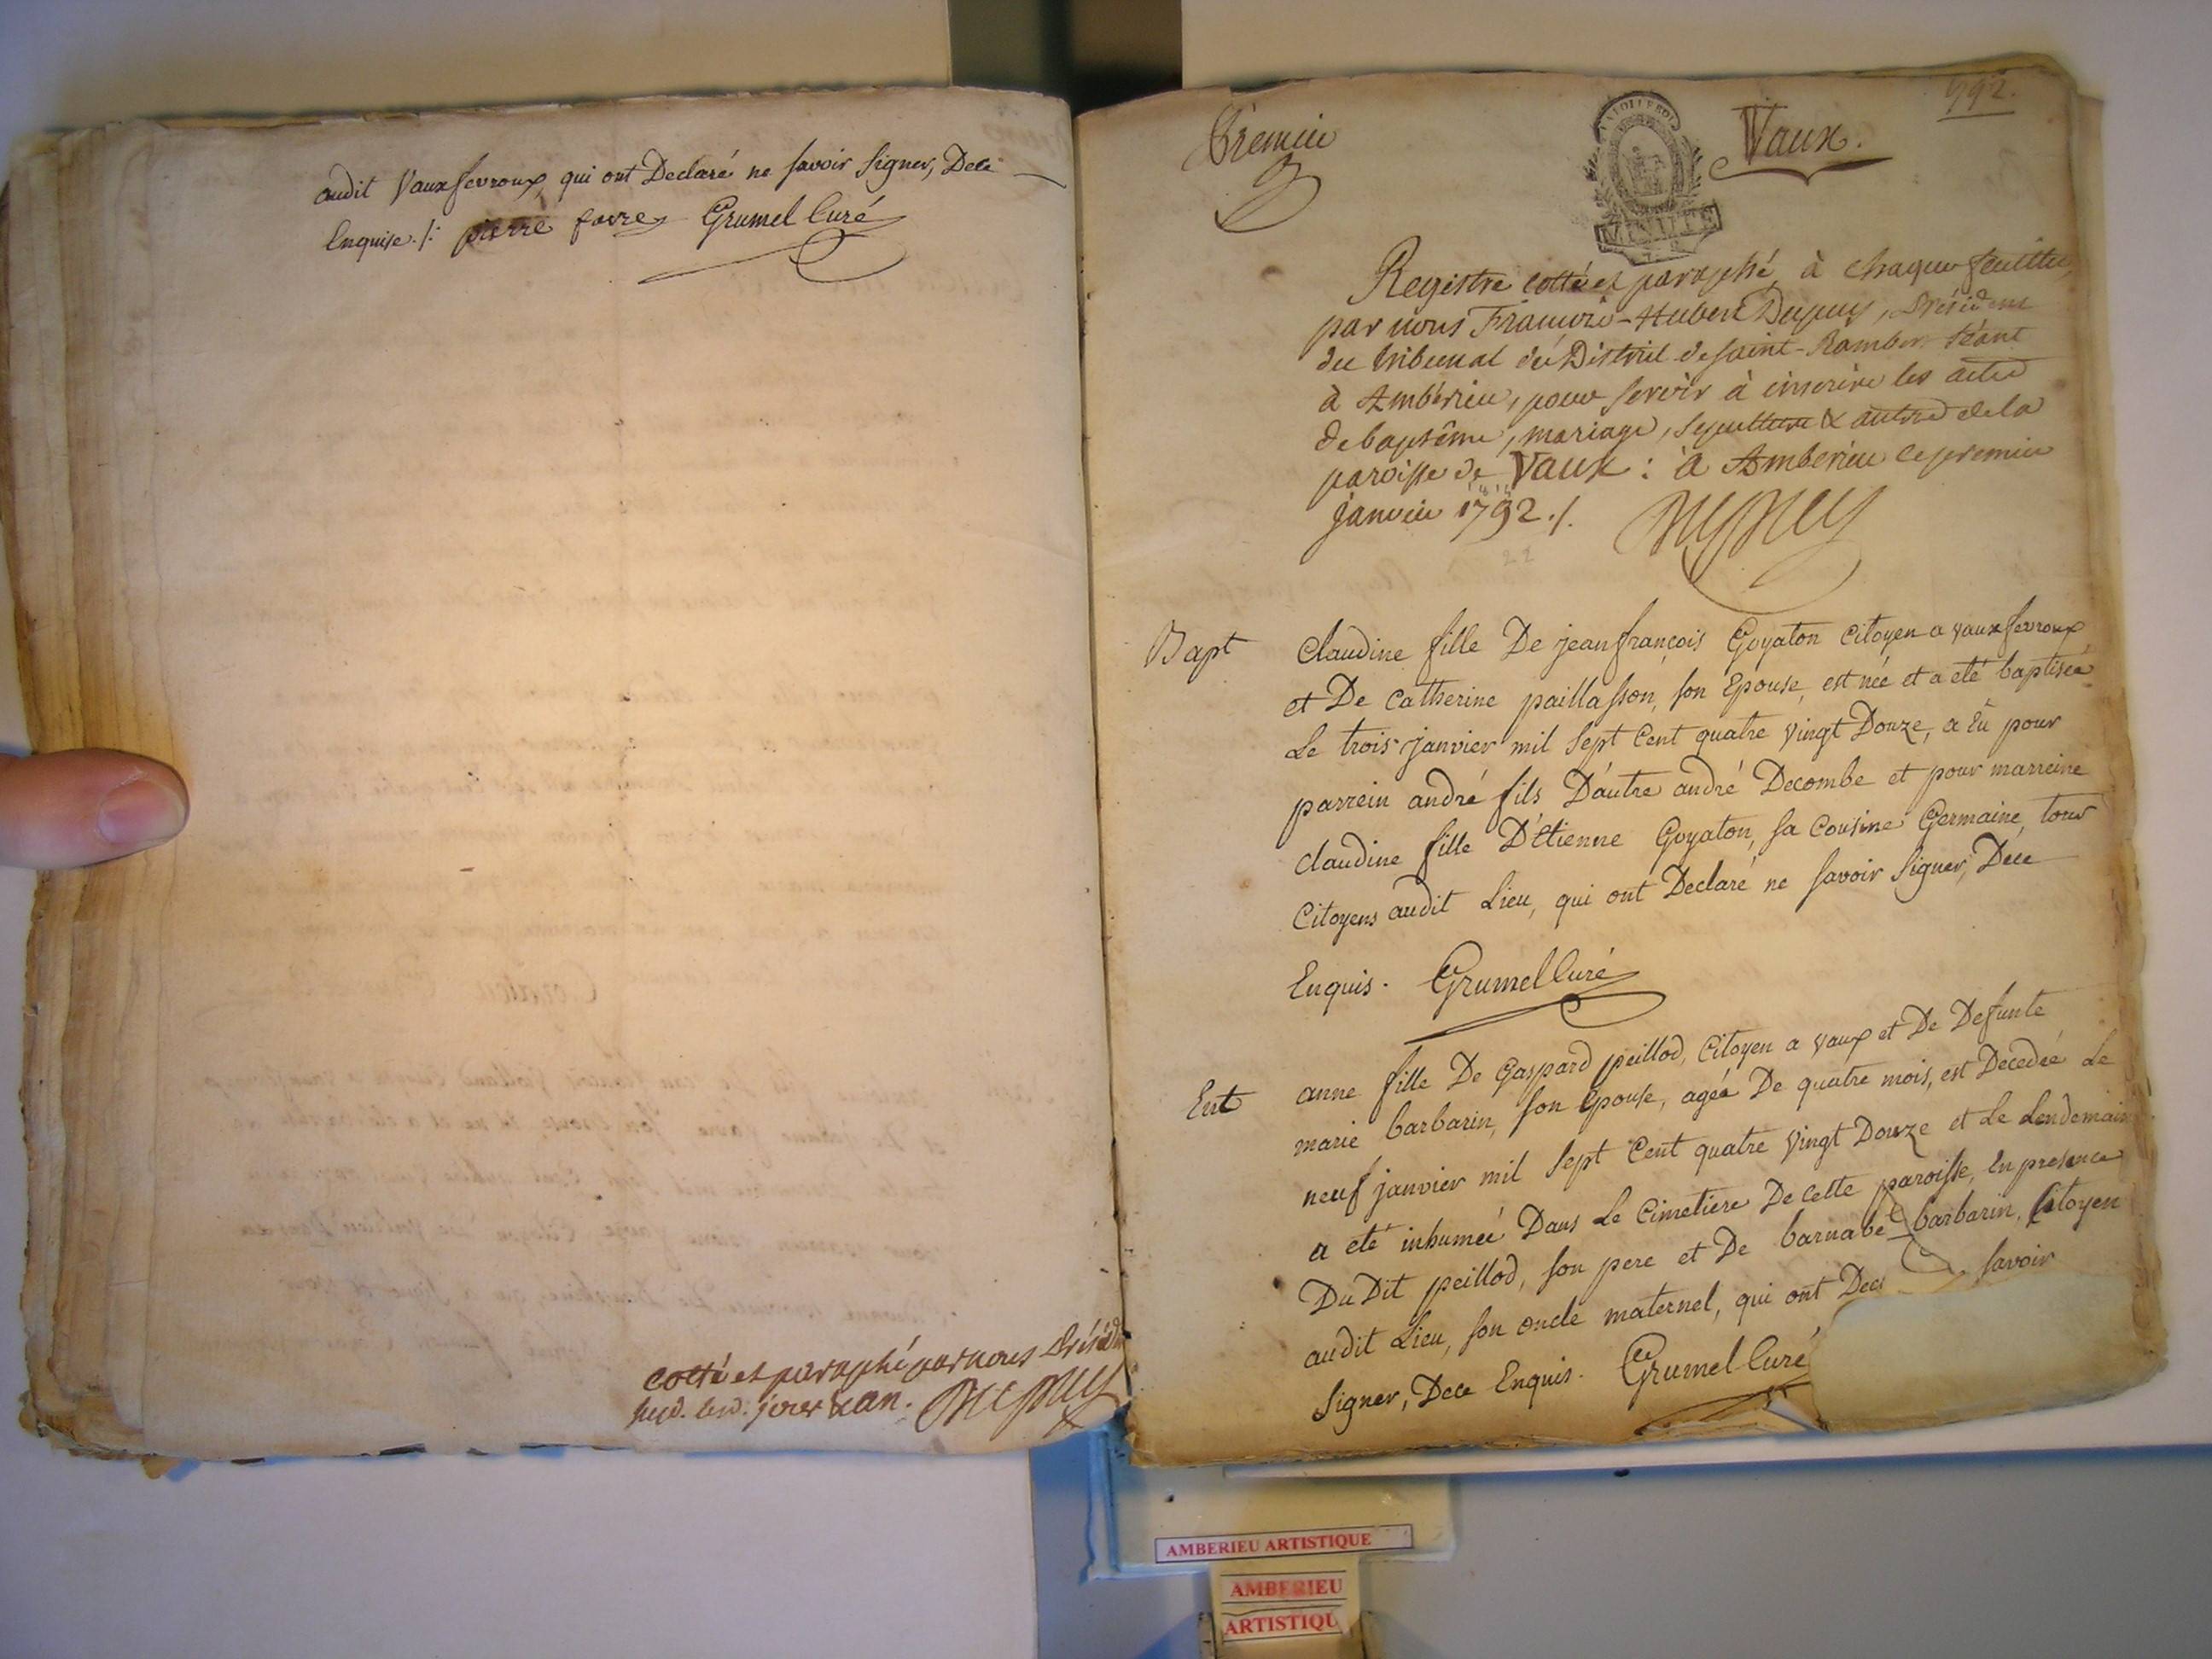 audit Vauxfevroux, qui ont Declaré ne savoir signer, Dece
Enquise ./. pierre favre Grumel Curé
cotté et paraphé par nous Présidt
jour & an. Dupuy
Premier
Vaux.
792.
MINUTE
Registre cotté et paraphé, à chaque feuillet,
par nous François-Hubert Dupuy, Président
du tribunal du District de saint-Rambert séant
à Ambérieu, pour servir à inscrire les actes
de baptême, mariage, sepulture & autres de la
paroisse de Vaux : à Ambérieu le premier
janvier 1792 ./. Dupuy
Bapt
Claudine fille De jean françois Goyaton Citoyen a vauxfevroux
et De Catherine paillasson, son Epouse, est née et a été baptiseé
Le trois janvier mil sept Cent quatre vingt Douze, a Eû pour
parrein andré fils D'autre andré Decombe et pour marreine
claudine fille D'Etienne Goyaton, sa Cousine Germaine, tous
Citoyens audit Lieu, qui ont Declaré ne savoir signer, Dece
Enquis. Grumel Curé
Ent
anne fille De Gaspard peillod, Citoyen a vaux et De Defunte
marie barbarin, son Epouse, ageé De quatre mois, est Decedeé Le
neuf janvier mil sept Cent quatre vingt Douze et Le Lendemain
a eté inhumeé Dans Le Cimetiere De Cette paroisse, En presence
Du Dit peillod, son pere et De barnabé barbarin, Citoyen
audit Lieu, son oncle maternel, qui ont Dec savoir
signer, Dece Enquis. Grumel Curé
AMBERIEU ARTISTIQUE
AMBERIEU
ARTISTIQU